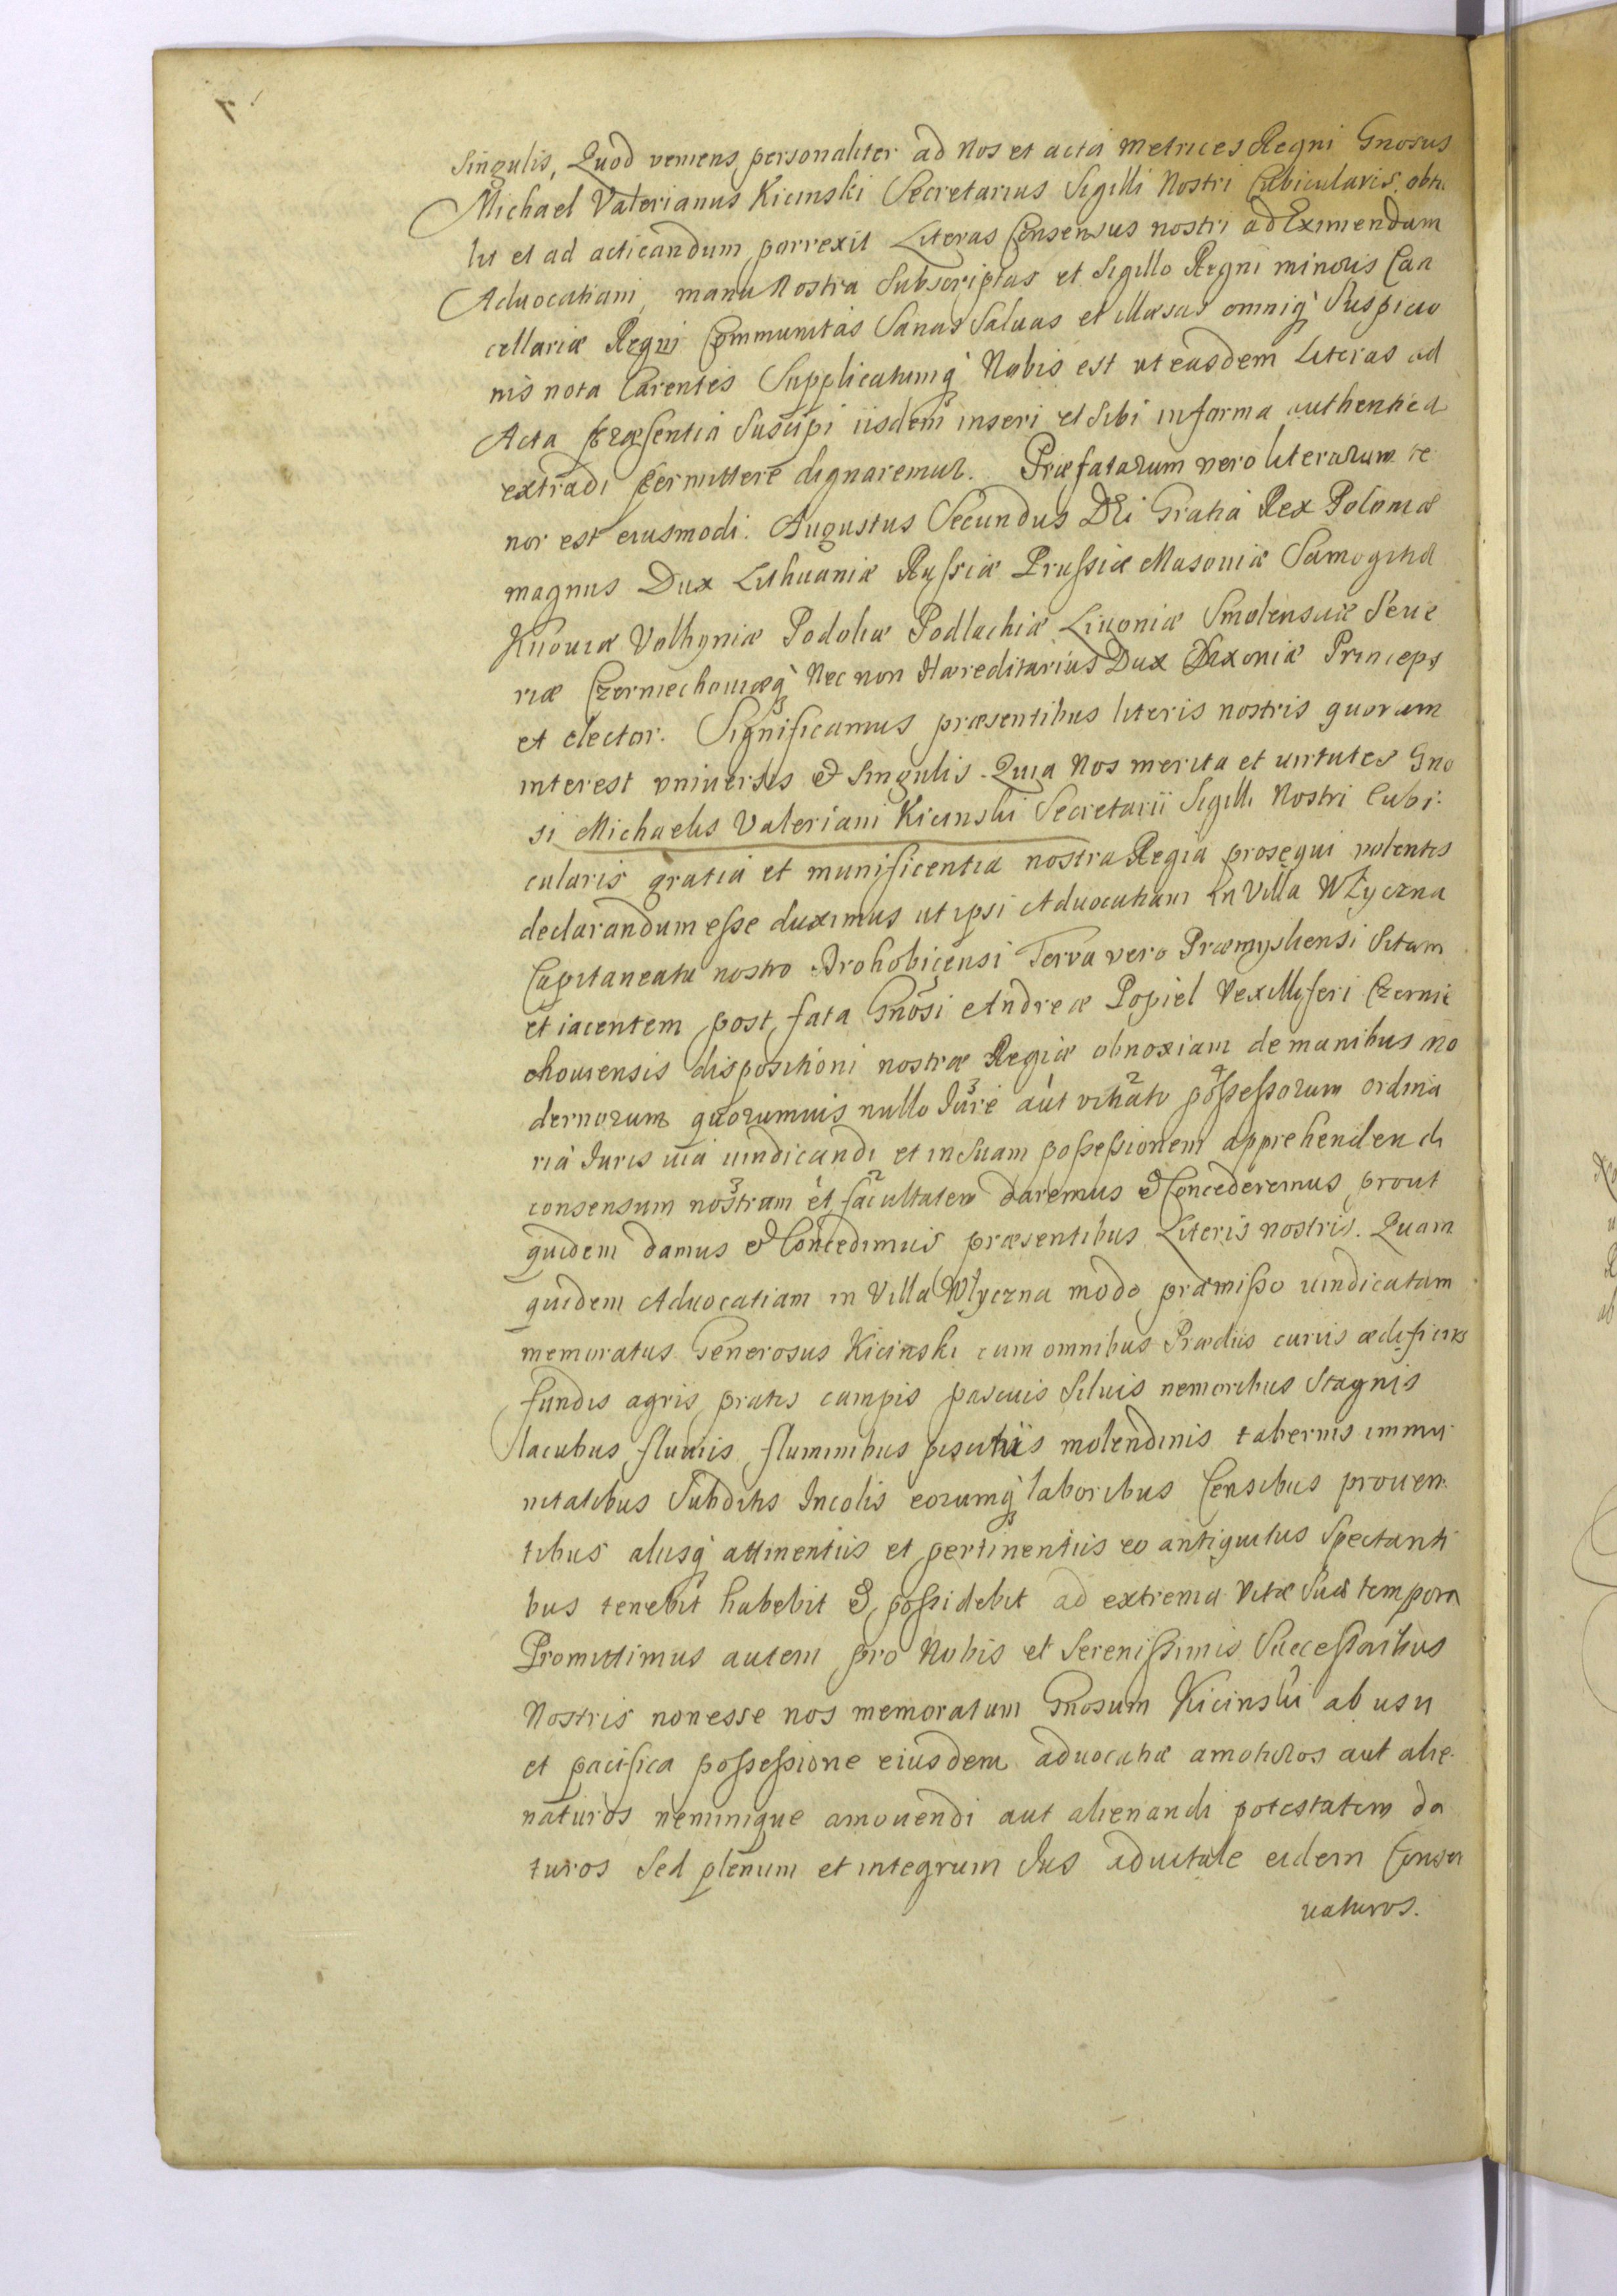 Singulis, Quod veniens personaliter ad Nos et acta Metrices Regni Gnosus
Michael Valerianus Kicinski Secretarius Sigilli Nostri Cubicularis, obtu
lit et ad acticandum porrexit Literas Consensus nostri ad Eximendam
Aduocatiam, manu Nostra Subscriptas et Sigillo Regni minoris Can
cellariæ Regni Communitas Sanas Saluas et illæsas omniq̀ Suspicio
nis nota Carentes Supplicatumq̀ Nobis est ut easdem Literas ad
Acta præsentia Suscipi iisdem inseri et sibi in forma authentica
extradi permittere dignaremur. Præfatarum vero literarum te
nor est eiusmodi. Augustus Secundus DEi Gratia Rex Poloniæ
magnus Dux Lithuaniæ Russiæ Prussiæ Masouiæ Samogitiæ
Kiiouiæ Volhyniæ Podoliæ Podlachiæ Liuoniæ Smolensciæ Seue
riæ Czerniechouiæq̀ Nec non Hæreditarius Dux Saxoniæ Princeps
et elector. Significamus præsentibus literis nostris quorum
interest vniuersis & Singulis. Quia Nos merita et uirtutes Gno
si Michaelis Valeriani Kicinski Secretarii Sigilli Nostri Cubi
cularis gratia et munificentia nostra Regia prosequi volentes
declarandum esse duximus ut ipsi Aduocatiam in Villa Włyczna
Capitaneatu nostro Drohobicensi Terra vero Præmysliensi Sitam
et iacentem post fata Gnosi Andreæ Popiel Vexilliferi Czernie
chouiensis dispositioni nostræ Regiæ obnoxiam de manibus mo
dernorum quorumuis nullo Jure 3 aut vitiato 2 possessorum 4 ordina
ria Juris uia uindicandi et in Suam possessionem apprehendendi
consensum nostrum 3 et facultatem 2 daremus & Concederemus prout
quidem damus & Concedimus præsentibus Literis nostris. Quam
quidem Aduocatiam in Villa Włyczna modo præmisso uindicatam
memoratus Generosus Kicinski cum omnibus Prædiis curiis ædificiis
fundis agris pratis campis pascuis Siluis nemoribus Stagnis
lacubus fluuiis fluminibus piscinis molendinis tabernis immu
nitatibus Subditis Incolis eorumq̀ laboribus Censibus prouen
tibus aliisq̀ attinentiis et pertinentiis eo antiquitus Spectanti
bus tenebit habebit & possidebit ad extrema vitæ Suæ tempora
Promittimus autem pro Nobis et Serenissimis Successoribus
Nostris non esse nos memoratum Gnosum Kicinski ab usu
et pacifica possessione eiusdem aduocatiæ amoturos aut alie
naturos neminique amouendi aut alienandi potestatem da
turos Sed plenum et integrum Jus aduitale eidem Conser
uaturos.